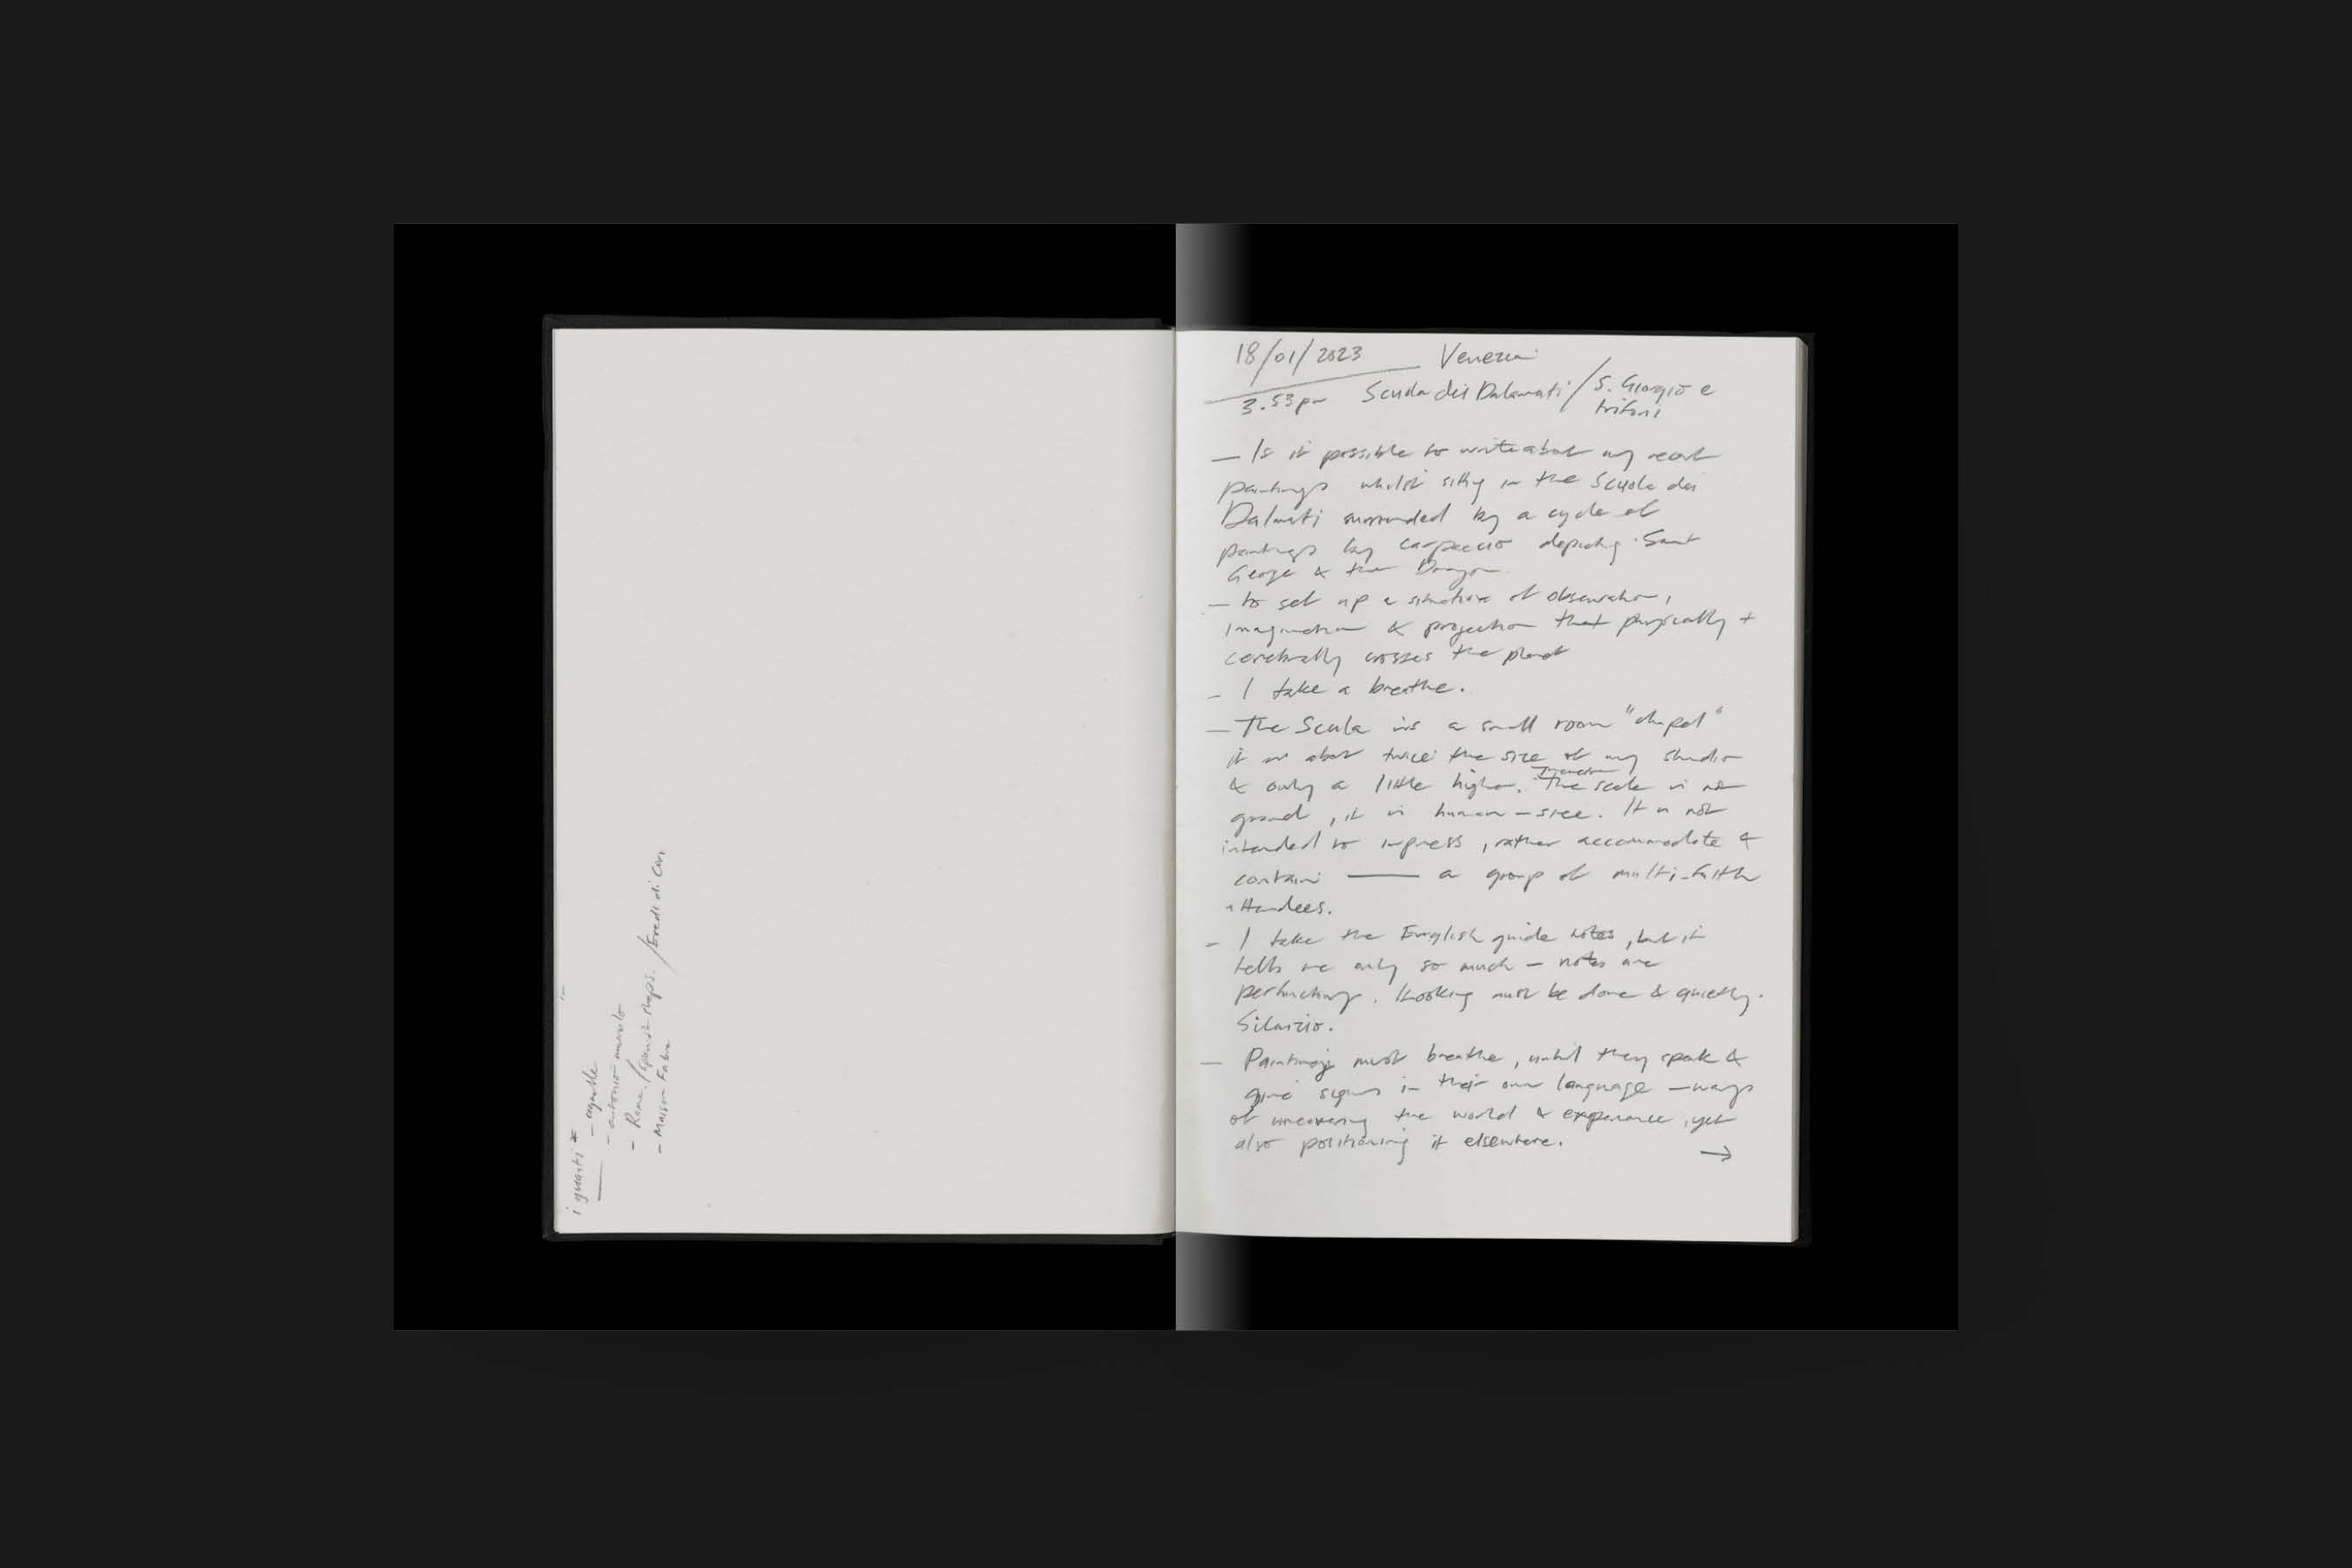 i guanti *
- agnelle
- antonio murolo
- Rome / Spanish steps. / Eredi di
- Maison Fabre
18/01/2023 Venezia
3.53pm Scuola dei Dalmati / S. Giorgio e
trifoni
— Is it possible to write about my recent
paintings whilst sitting in the Scuola dei
Dalmati surrounded by a cycle of
paintings by Carpaccio depicting Saint
George & the Dragon.
— to set up a situation of observation,
imagination & projection that physically +
cerebrally crosses the planet
- I take a breathe.
— The Scula is a small room "chapel"
it is about twice the size of my studio
& only a little higher. The scale is not
grand, it is human-size. It is not
intended to impress, rather accommodate &
contain — a group of multi-faith
attendees.
- I take the English guide notes, but it
tells me only so much — notes are
perfunctory. Looking must be done & quietly.
Silenzio.
— Paintings must breathe, until they speak &
give signs in their own language — ways
of uncovering the world & experience, yet
also positioning it elsewhere.
→